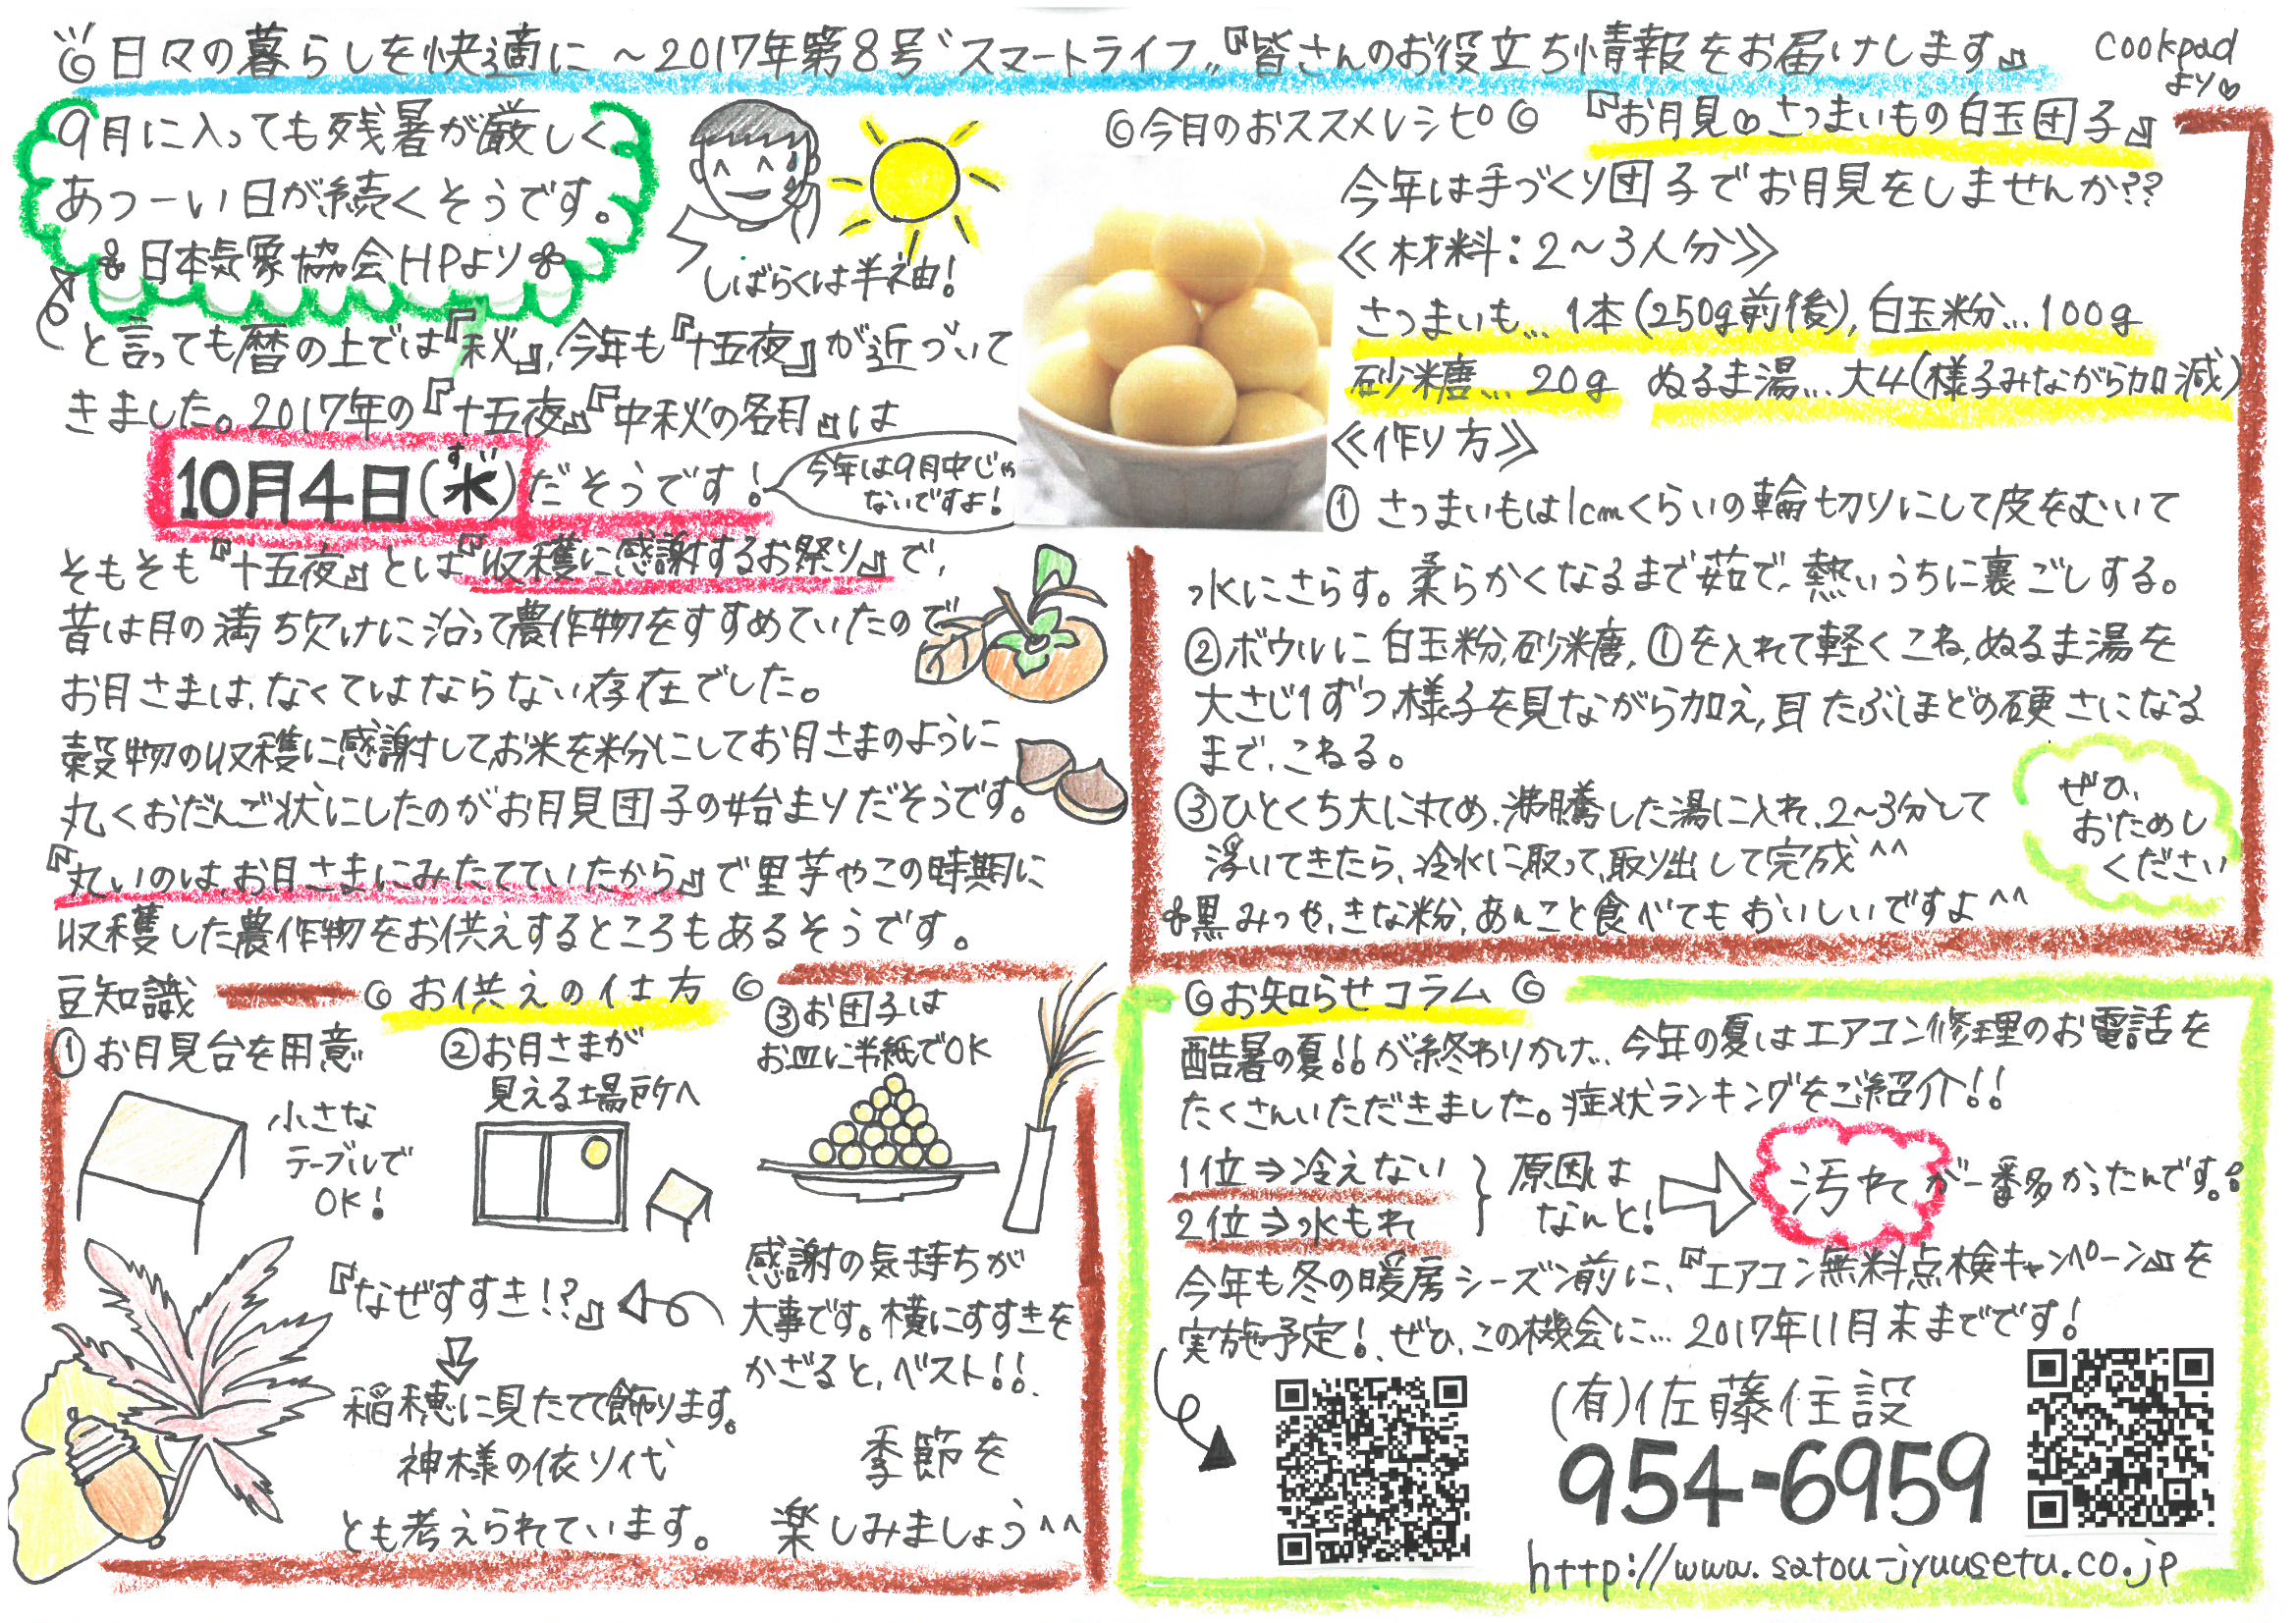 ◎日々の暮らしを快適に ～2017年第8号"スマートライフ"『皆さんのお役立ち情報をお届けします』
9月に入っても残暑が厳しく
あつーい日が続くそうです。
日本気象協会HPより
しばらくは半袖!
と言っても暦の上では『秋』,今年も『十五夜』が近づいて
きました。2017年の『十五夜』『中秋の名月』は
10月4日(水)だそうです!
すい
今年は9月中じゃ
ないですよ!
そもそも『十五夜』とは『収穫に感謝するお祭り』で,
昔は月の満ち欠けに沿って農作物をすすめていたので
お月さまは,なくてはならない存在でした。
穀物の収穫に感謝してお米を粉にしてお月さまのように
丸くおだんご状にしたのがお月見団子の始まりだそうです。
『丸いのは,お月さまにみたてていたから』で里芋やこの時期に
収穫した農作物をお供えするところもあるそうです。
豆知識 ◎お供えの仕方◎
①お月見台を用意
小さな
テーブルで
OK!
②お月さまが
見える場所へ
③お団子は
お皿に半紙でOK
感謝の気持ちが
大事です。横にすすきを
かざると,ベスト!!
『なぜすすき!?』
稲穂に見たてて飾ります。
神様の依り代
とも考えられています。
季節を
楽しみましょう^^
cookpad
より♡
◎今月のおススメレシピ◎ 『お月見♡さつまいもの白玉団子』
今年は手づくり団子でお月見をしませんか??
≪材料:2～3人分≫
さつまいも…1本(250g前後),白玉粉…100g
砂糖…20g ぬるま湯…大4(様子みながら加減)
≪作り方≫
① さつまいもは1cmくらいの輪切りにして皮をむいて
水にさらす。柔らかくなるまで茹で,熱いうちに裏ごしする。
②ボウルに白玉粉,砂糖,①を入れて軽くこね,ぬるま湯を
大さじ1ずつ,様子を見ながら加え,耳たぶほどの硬さになる
まで,こねる。
③ひとくち大に丸め,沸騰した湯に入れ,2～3分して
浮いてきたら,冷水に取って,取り出して完成^^
黒みつや,きな粉,あんこと食べてもおいしいですよ^^
ぜひ,
おためし
ください
◎お知らせコラム◎
酷暑の夏!!が終わりかけ…今年の夏はエアコン修理のお電話を
たくさんいただきました。症状ランキングをご紹介!!
1位⇒冷えない
2位⇒水もれ
原因は
なんと!
汚れが一番多かったんです。
今年も冬の暖房シーズン前に,『エアコン無料点検キャンペーン』を
実施予定!,ぜひ,この機会に…2017年11月末までです!
(有)佐藤住設
954-6959
http://www.satou-jyuusetu.co.jp